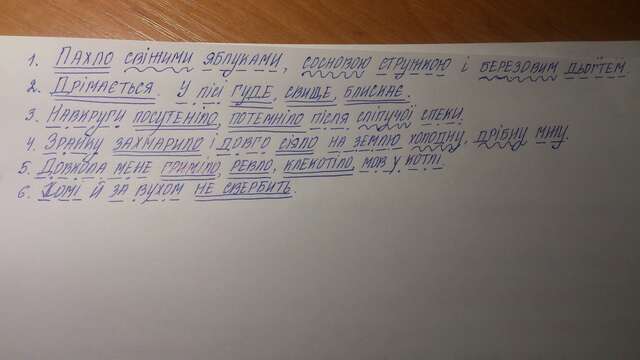 1. Пахло свіжими яблуками, сосновою стружкою і березовим дьогтем.
2. Дрімається. У лісі гуде, свище, блискає.
3. Навкруги посутеніло, потемніло після сліпучої спеки.
4. Зранку захмарило і довго сіяло на землю холодну, дрібну мжу.
5. Довкола мене гриміло, ревло, клекотіло, мов у котлі.
6. Хомі й за вухом не свербить.